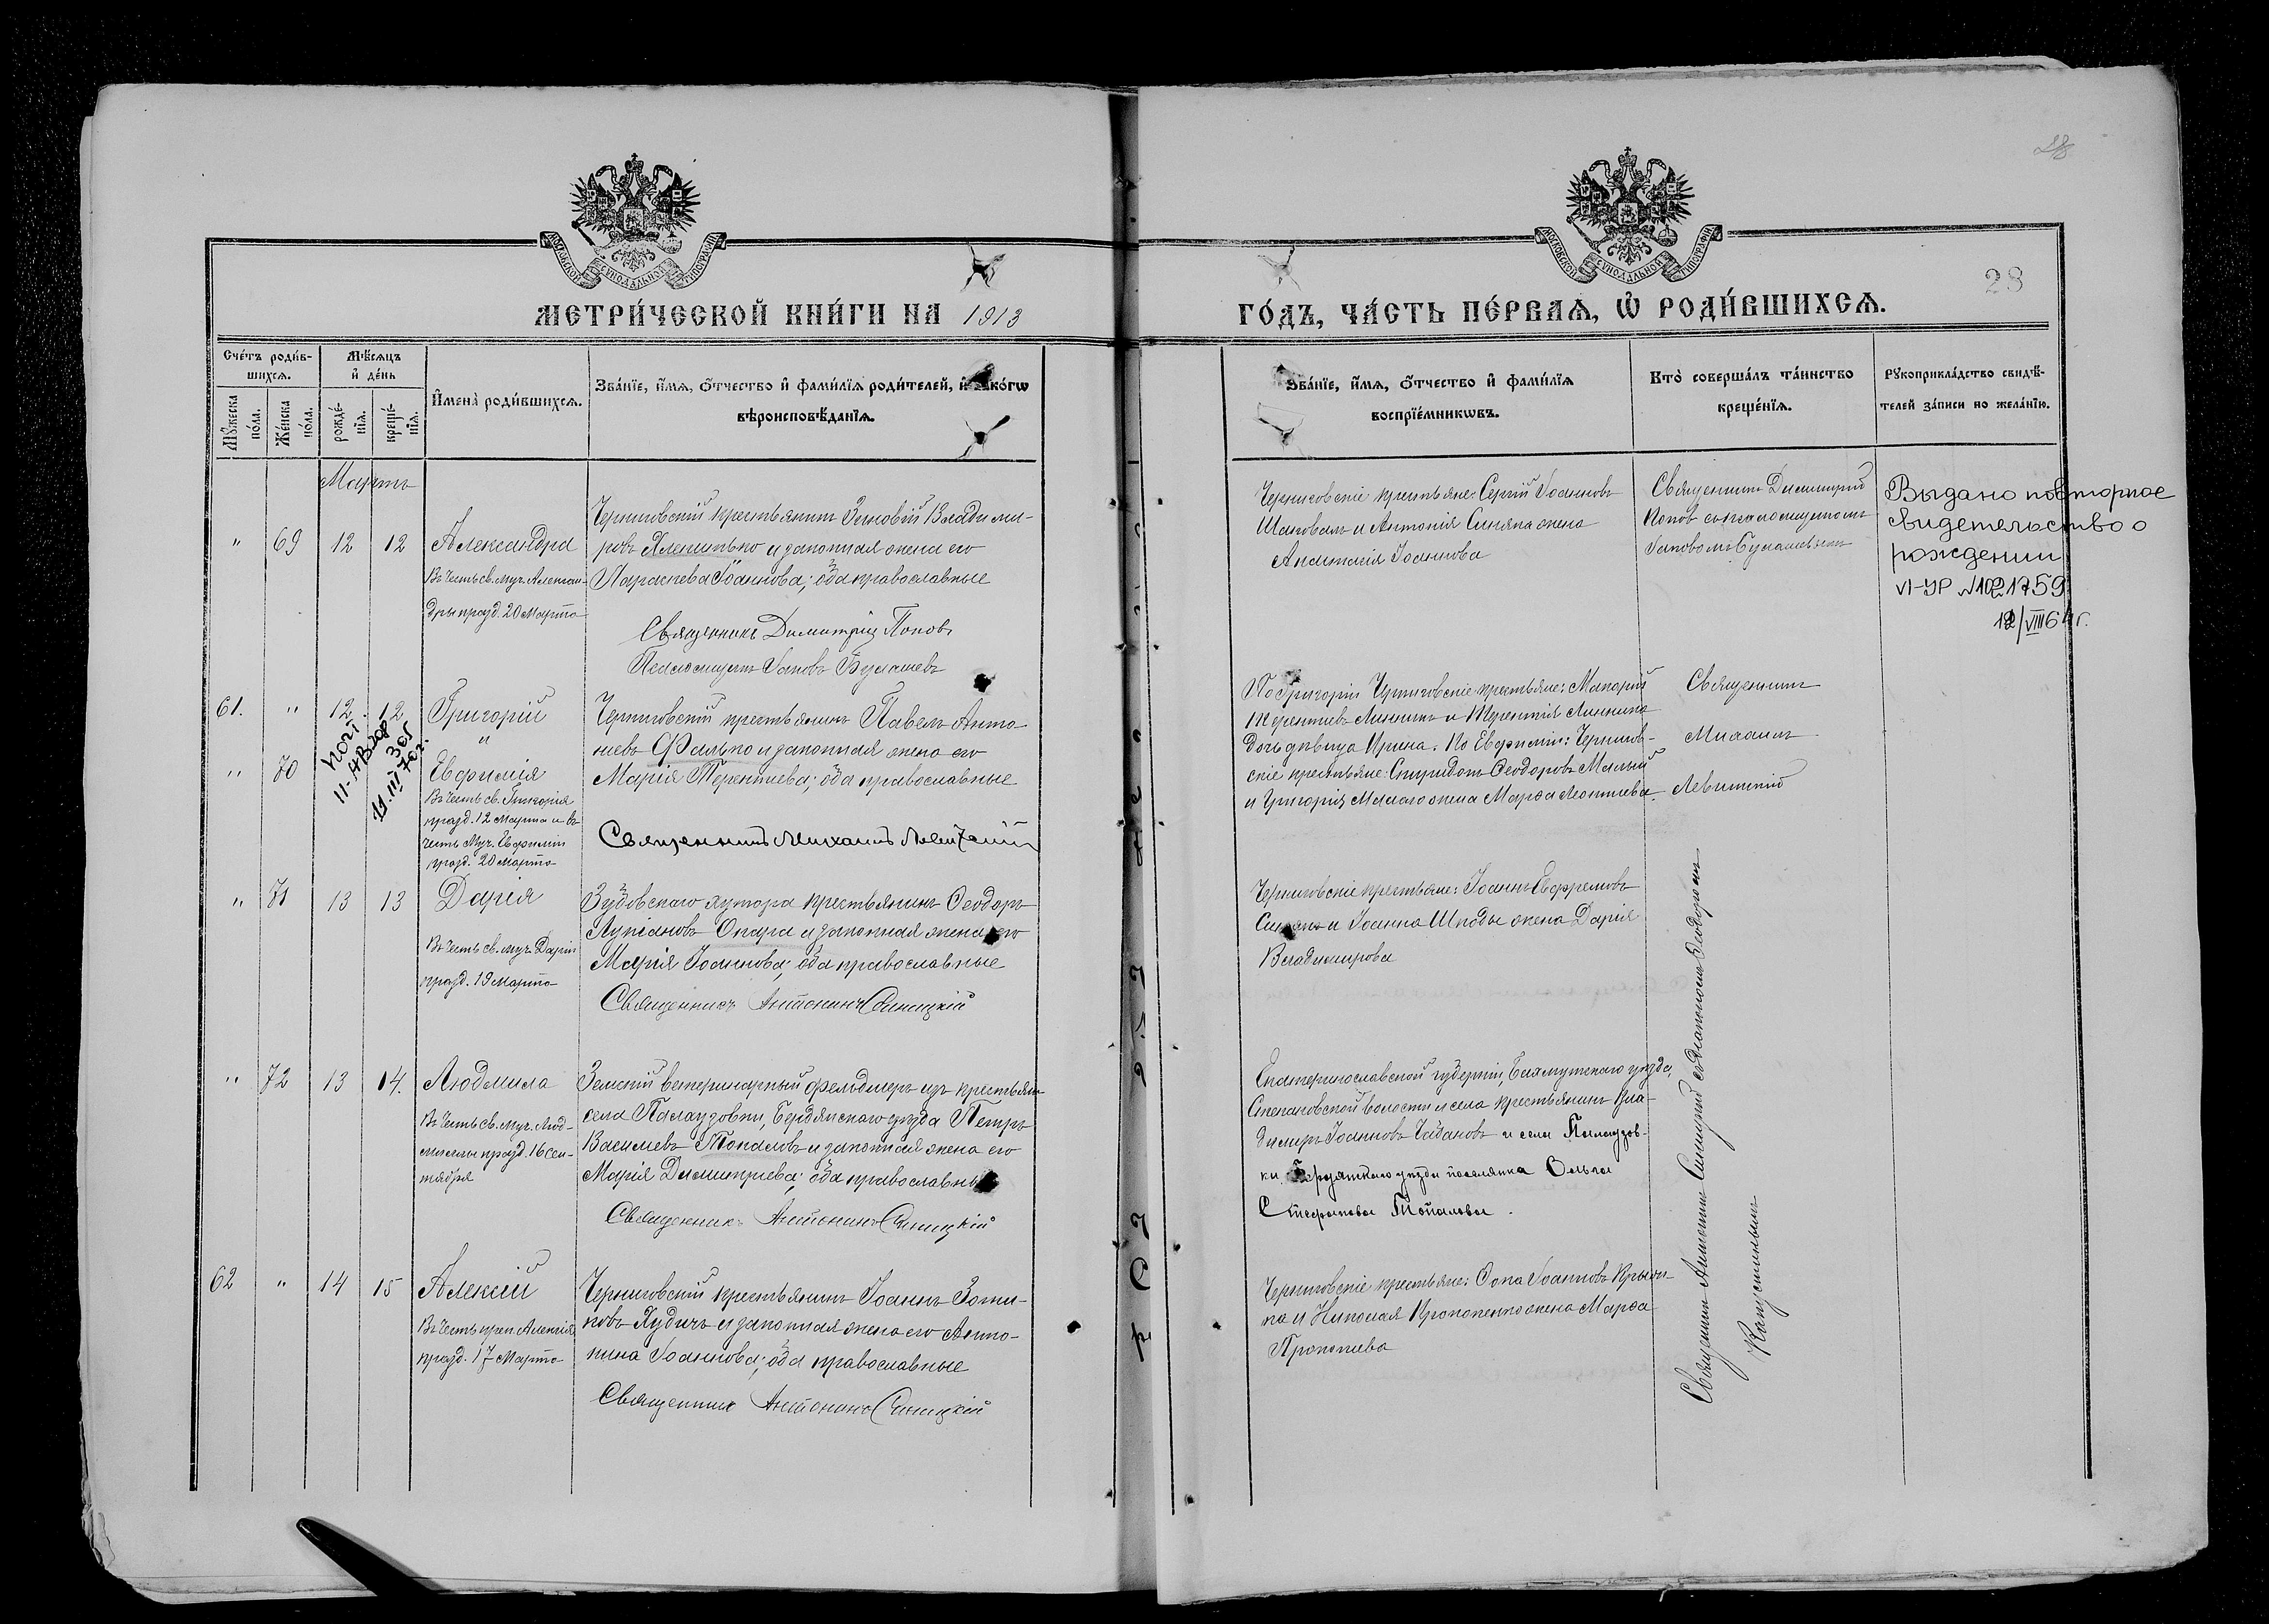 28
МОСКОВСКОЙ СУНОДАЛЬНОЙ ТИПОГРАФІИ
МОСКОВСКОЙ СУНОДАЛЬНОЙ ТИПОГРАФІИ
28
МЕТРИ́ЧЕСКОЙ КНИ́ГИ НА 1913
ГО́ДЪ, ЧА́СТЬ ПЕ́РВАѦ, Ѡ РОДИ́ВШИХСѦ.
Сче́тъ роди́в-
шихсѧ.
Мꙋ́жеска
по́ла.
Же́нска
по́ла.
Мѣ́сѧцъ
и҆ де́нь
рожде́-
нїѧ.
креще́-
нїѧ.
И҆мена̀ роди́вшихсѧ.
Зва́нїе, и҆́мѧ, ѻ҆́тчество и҆ фами́лїѧ роди́телей, и҆ како́гѡ
вѣроисповѣ́данїѧ.
Зва́нїе, и҆́мѧ, ѻ҆́тчество и҆ фами́лїѧ
воспрїе́мникѡвъ.
Кто̀ соверша́лъ та́инство
креще́нїѧ.
Рꙋкоприкла́дство свидѣ́-
телей за́писи по жела́нїю.
Мартъ
" 69 12 12 Александра
Въ честь св. муч. Алексан-
дры празд. 20 Марта
Черниговскій крестьянинъ Зиновій Влади ми-
ровъ Яленилько и законная жена его
Параскева Іоаннова; оба православные
Священникъ Димитрій Поповъ
Псаломщикъ Іаковъ Булашевъ
Черниговскіе крестьяне: Сергій Іоанновъ
Шаповалъ и Антонія Синяпа жена
Анастасія Іоаннова
Священникъ Димитрій
Попов съ псаломщикомъ
Іаковомъ Булашевымъ
Выдано повторное
свидетельство о
рождении
VI-УР №1021759
12/VIII 64 г.
61. " 12. 12 Григорій
и
" 70 Евфимія
Въ честь св. Григорія
празд. 12 Марта и въ
честь Муч. Евфиміи
празд. 20 Марта
II-АВ
11.III 70 г.
Черниговскій крестьянинъ Павелъ Анто-
ніевъ Фалько и законная жена его
Марія Терентіева; оба православные
Священникъ Михаилъ Левитскій
По Григорію Черниговскіе крестьяне: Макарій
Терентіевъ Линникъ и Терентія Линника
дочь дѣвица Ирина. По Евфиміи: Чернигов-
скіе крестьяне: Спиридонъ Ѳеодоровъ Малый
и Григорія Малаго жена Марѳа Леонтіева.
Священникъ
Михаилъ
Левитскій
" 71 13 13 Дарія
Въ честь св. муч. Даріи
празд. 19 Марта
Зубовскаго хутора крестьянинъ Ѳеодоръ
Лукіановъ Опара и законная жена его
Марія Іоаннова; оба православные
Священникъ Антонинъ Синицкій
Черниговскіе крестьяне: Іоаннъ Евфремовъ
и Іоанна Шкоды жена Дарія
Владимирова
" 72 13 14. Людмила
Въ честь св. муч. Люд-
милы празд. 16 Сен-
тября
Земскій ветеринарный фельдшеръ изъ крестьянъ
села Палаузовки, Бердянскаго уѣзда Петръ
Василіевъ Топаловъ и законная жена его
Марія Димитріева; оба православные
Священникъ Антонинъ Синицкій
Екатеринославской губерніи, Бахмутскаго уѣзда,
Степановской волости и села крестьянинъ Вла-
димиръ Іоанновъ Чабановъ и села Палаузов-
ки Бердянскаго уѣзда поселянка Ольга
Стефанова Топалова.
62 " 14 15 Алексій
Въ честь преп. Алексія
празд. 17 Марта
Черниговскій крестьянинъ Іоаннъ Зоти-
ковъ Худичъ и законная жена его Анто-
нина Іоаннова; оба православные
Священникъ Антонинъ Синицкій
Черниговскіе крестьяне: Ѳома Іоанновъ
и Николая Прокопенко жена Марѳа
Прокопіева
Священникъ Антонинъ Синицкій съ діакономъ Ѳеодоромъ
Капустинымъ